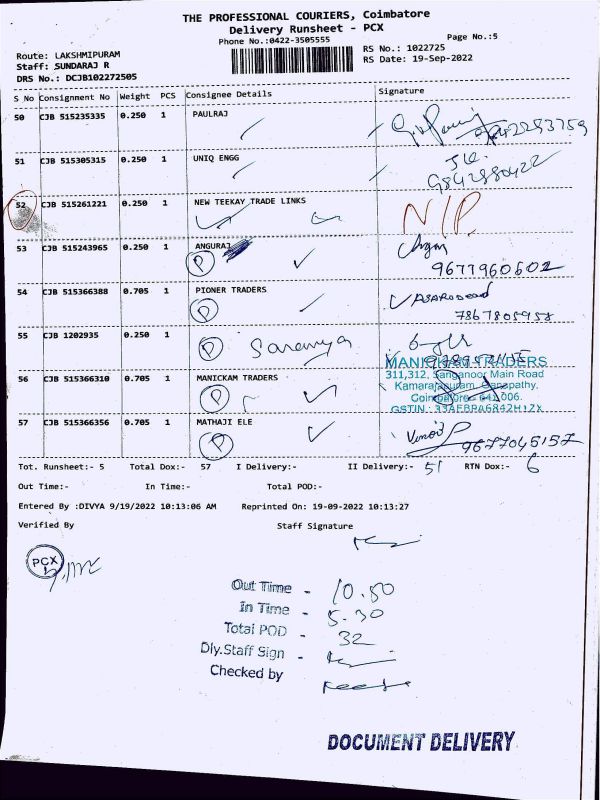 THE PROFESSIONAL COURIERS, Coimbatore
Delivery Runsheet - PCX
Phone No.:0422-3505555
Page No.:5
RS No.: 1022725
RS Date: 19-Sep-2022
Route: LAKSHMIPURAM
Staff: SUNDARAJ R
DRS No.: DCJB102272505
S No Consignment No Weight PCS Consignee Details Signature
50 CJB 515235335 0.250 1 PAULRAJ
51 CJB 515305315 0.250 1 UNIQ ENGG
9842880422
52 CJB 515261221 0.250 1 NEW TEEKAY TRADE LINKS
N/P
53 CJB 515243965 0.250 1 ANGURAJ
P 9677960602
54 CJB 515366388 0.705 1 PIONER TRADERS
P 7867805958
55 CJB 1202935 0.250 1 P Saranya
MANICKAM TRADERS
311,312, Sanganoor Main Road
56 CJB 515366310 0.705 1 MANICKAM TRADERS Kamarajapuram, Ganapathy,
P Coimbatore - 641 006.
GSTIN : 33AEBPA6842H1ZX
57 CJB 515366356 0.705 1 MATHAJI ELE
P Vinoth 9677045157
Tot. Runsheet:- 5 Total Dox:- 57 I Delivery:- II Delivery:- 51 RTN Dox:- 6
Out Time:- In Time:- Total POD:-
Entered By :DIVYA 9/19/2022 10:13:06 AM Reprinted On: 19-09-2022 10:13:27
Verified By Staff Signature
PCX
Out Time - 10.50
In Time - 5.30
Total POD - 32
Dly.Staff Sign -
Checked by
DOCUMENT DELIVERY